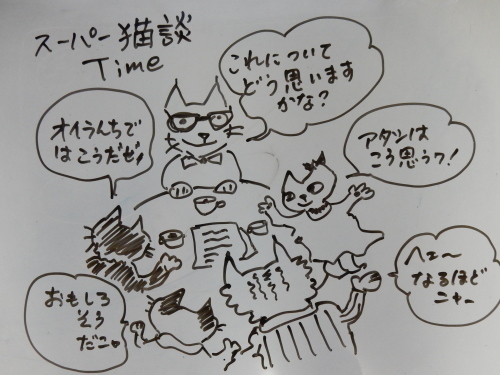 スーパー猫談
Time
これについて
どう思います
かな?
オイラんちで
はこうだぜ!
アタシは
こう思うワ!
ヘェ〜
なるほど
ニャー
おもしろ
そう
だニャ